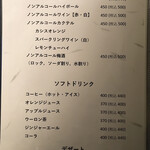 ノンアルコールハイボール 450 (税込 500)
ノンアルコールワイン【赤・白】 450 (税込 500)
ノンアルコールカクテル 450 (税込 500)
カシスオレンジ
スパークリングワイン（白）
レモンチューハイ
ノンアルコール梅酒 450 (税込 500)
（ロック、ソーダ割り、水割り）
ソフトドリンク
コーヒー（ホット・アイス） 400
オレンジジュース
アップルジュース
ウーロン茶
ジンジャーエール
コーラ
デザート